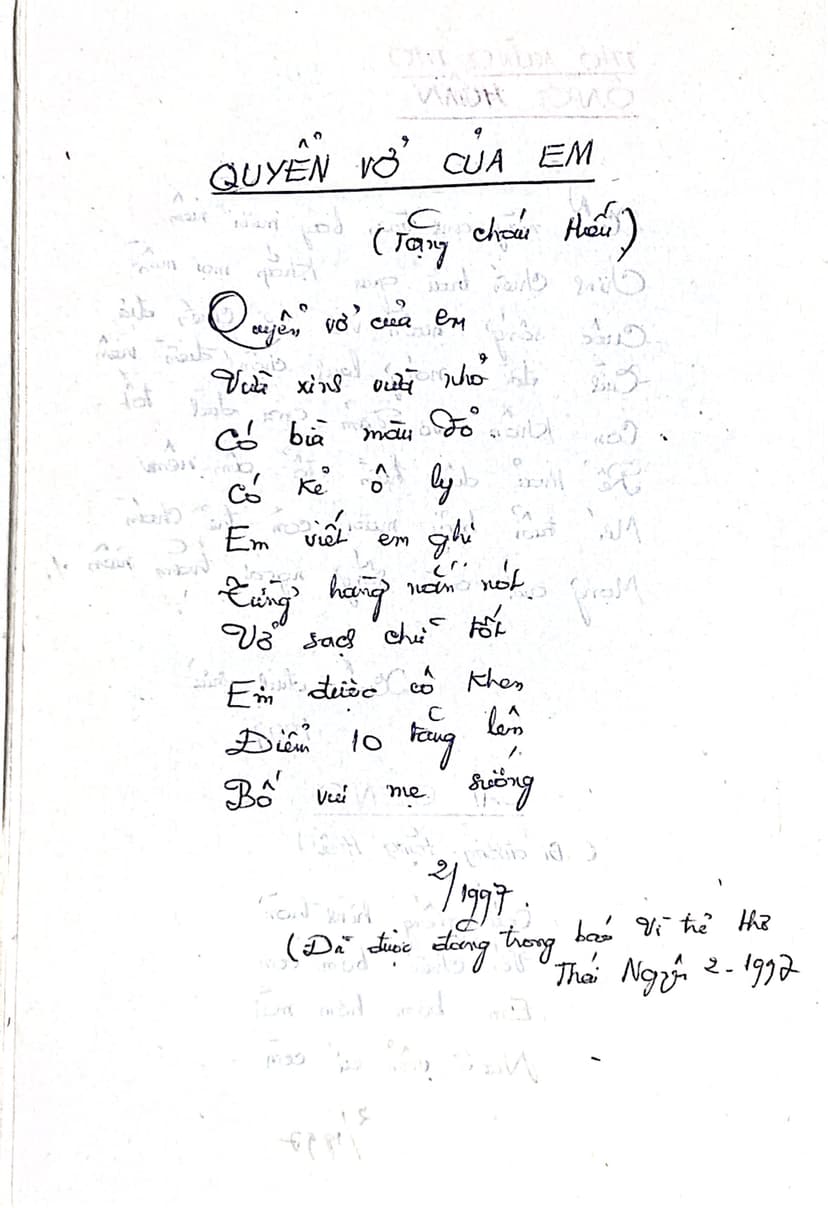 QUYỂN VỞ CỦA EM
(Tặng cháu Hiếu)
Quyển vở của em
Vừa xinh vừa nhỏ
Có bìa màu đỏ
Có kẻ ô ly
Em viết em ghi
Từng hàng nắn nót
Vở sạch chữ tốt
Em được cô khen
Điểm 10 tăng lên
Bố vui mẹ sướng
2/1997.
(Đã được đăng trong báo Vì trẻ thơ
Thái Nguyên 2-1997